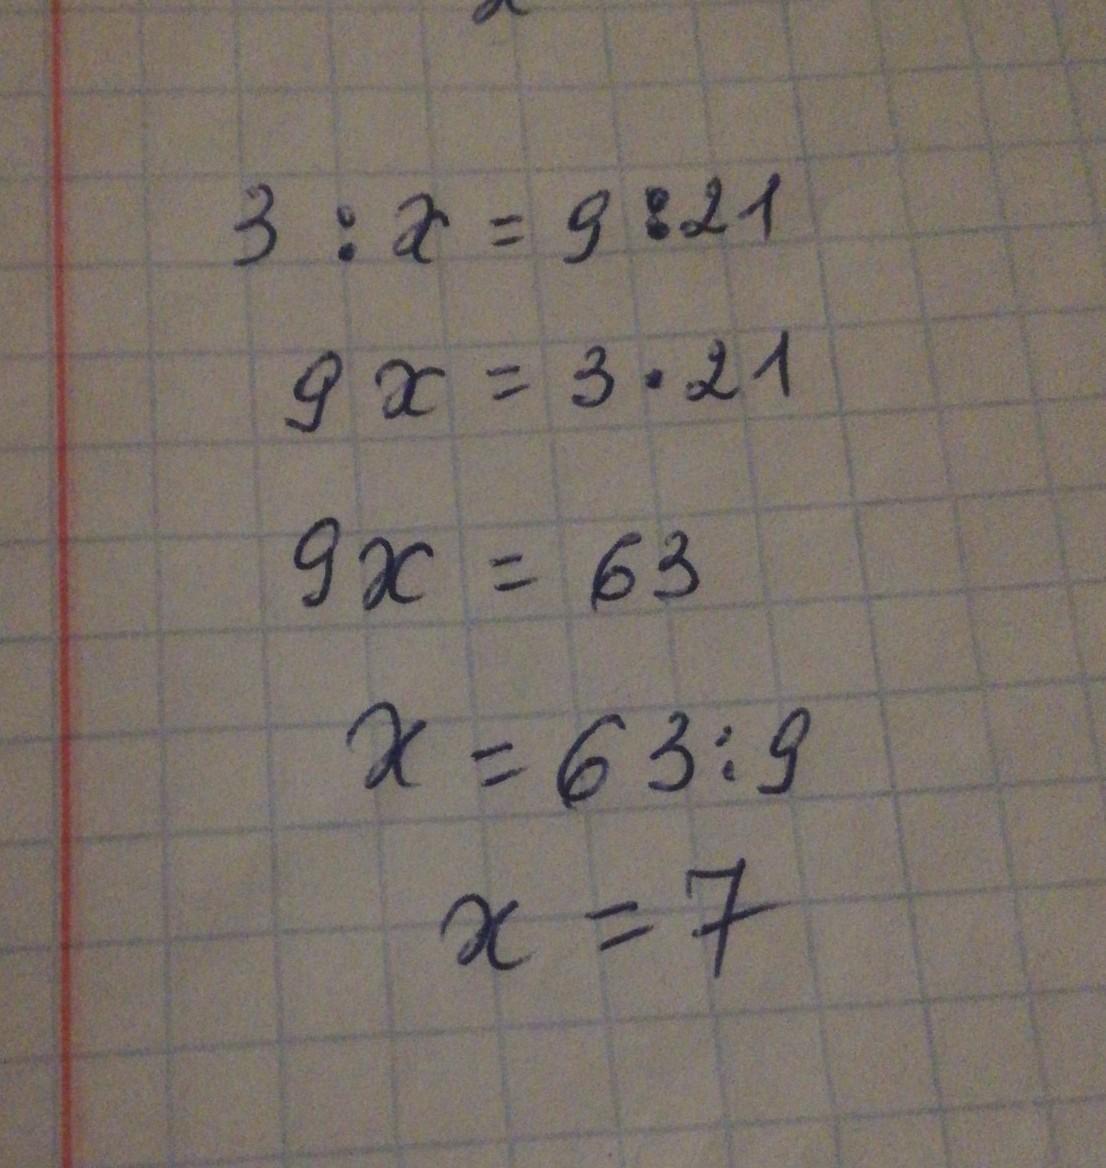 3 : x = 9 : 21
9x = 3 · 21
9x = 63
x = 63 : 9
x = 7